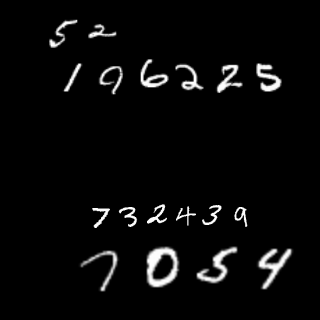 52
196225
732439
7054